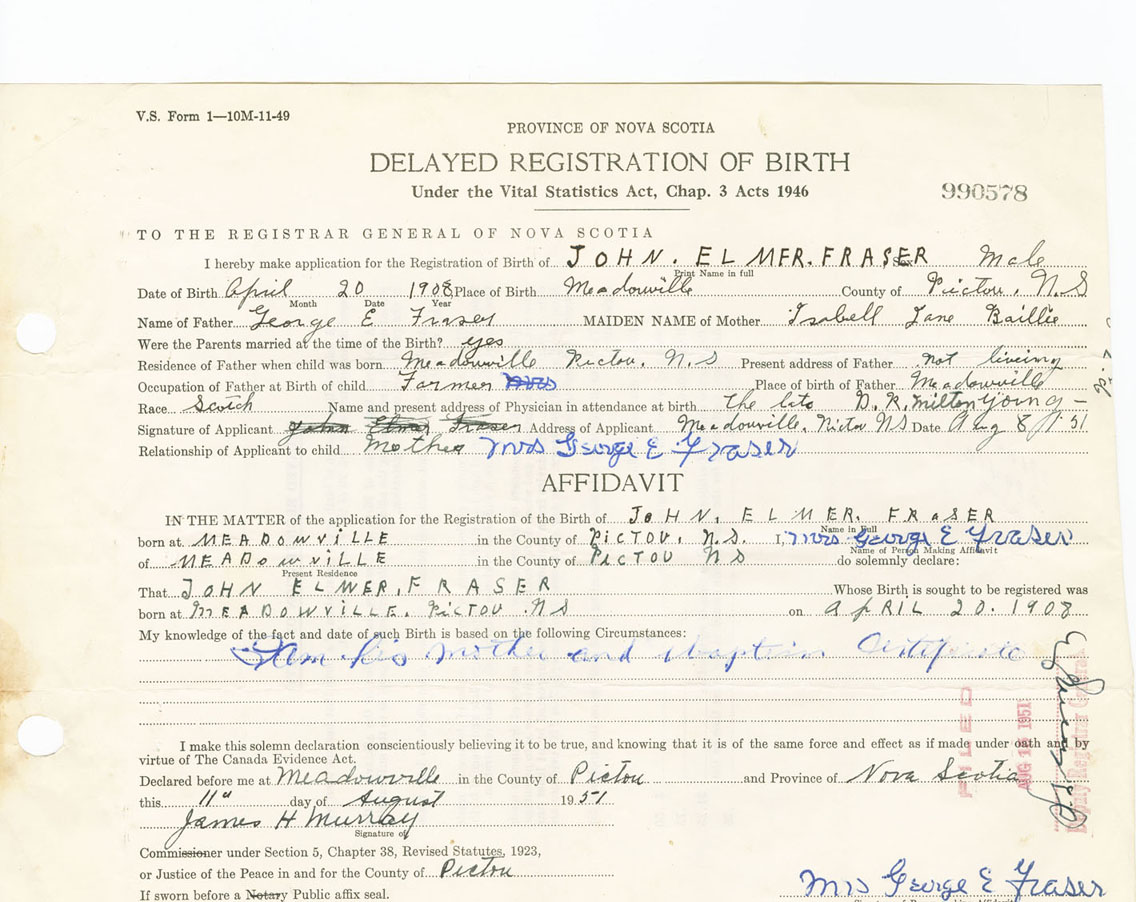 V.S. Form 1—10M-11-49
PROVINCE OF NOVA SCOTIA
DELAYED REGISTRATION OF BIRTH
Under the Vital Statistics Act, Chap. 3 Acts 1946
990578
TO THE REGISTRAR GENERAL OF NOVA SCOTIA
I hereby make application for the Registration of Birth of JOHN. ELMER. FRASER Male
Print Name in full Sex
Date of Birth April 20 1908 Place of Birth Meadowville County of Pictou, N.S
Month Date Year
Name of Father George E Fraser MAIDEN NAME of Mother Isabell Jane Baillie
Were the Parents married at the time of the Birth? yes
Residence of Father when child was born Meadowville Pictou. N.S Present address of Father not liveing
Occupation of Father at Birth of child Farmer Place of birth of Father Meadowville
Race Scotch Name and present address of Physician in attendance at birth the late D.R. Milton Young –
Signature of Applicant John Elmer Fraser Address of Applicant Meadowville, Pictou NS Date Aug 8 51
Relationship of Applicant to child Mother Mrs George E Fraser
AFFIDAVIT
IN THE MATTER of the application for the Registration of the Birth of JOHN. ELMER. FRASER
Name in Full
born at MEADOWVILLE in the County of PICTOU, N.S. I, Mrs George E Fraser
Name of Person Making Affidavit
of MEADOWVILLE in the County of PICTOU NS do solemnly declare:
Present Residence
That JOHN ELMER, FRASER Whose Birth is sought to be registered was
born at MEADOWVILLE, PICTOU .NS on APRIL 20. 1908
My knowledge of the fact and date of such Birth is based on the following Circumstances:
I Am his mother and baptism Certificate
I make this solemn declaration conscientiously believing it to be true, and knowing that it is of the same force and effect as if made under oath and by
virtue of The Canada Evidence Act.
Declared before me at Meadowville in the County of Pictou and Province of Nova Scotia
this 11th day of August 1951
James H Murray
Signature of
Commissioner under Section 5, Chapter 38, Revised Statutes, 1923,
or Justice of the Peace in and for the County of Pictou
If sworn before a Notary Public affix seal.
Mrs George E Fraser
FILED
AUG 1951
Deputy Registrar General